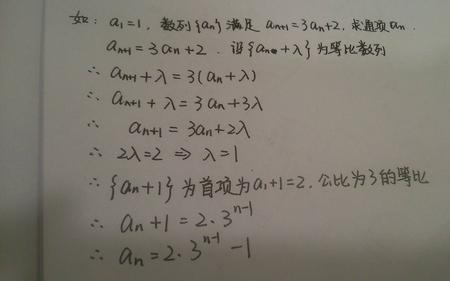 如：a₁=1，数列{an}满足 an+1=3an+2，求通项an.
an+1=3an+2．设{an+λ}为等比数列
∴ an+1+λ=3(an+λ)
∴ an+1+λ=3an+3λ
∴ an+1=3an+2λ
∴ 2λ=2 ⇒ λ=1
∴ {an+1}为首项为a₁+1=2，公比为3的等比
∴ an+1=2·3ⁿ⁻¹
∴ an=2·3ⁿ⁻¹-1